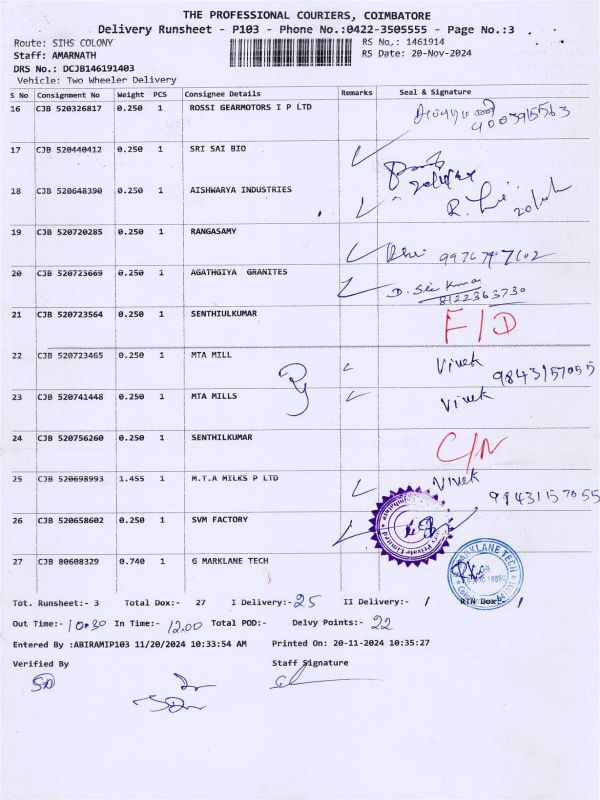 THE PROFESSIONAL COURIERS, COIMBATORE
Delivery Runsheet - P103 - Phone No.:0422-3505555 - Page No.:3
Route: SIHS COLONY RS No.: 1461914
Staff: AMARNATH RS Date: 20-Nov-2024
DRS No.: DCJB146191403
Vehicle: Two Wheeler Delivery
S No Consignment No Weight PCS Consignee Details Remarks Seal & Signature
16 CJB 520326817 0.250 1 ROSSI GEARMOTORS I P LTD
17 CJB 520440412 0.250 1 SRI SAI BIO
18 CJB 520648390 0.250 1 AISHWARYA INDUSTRIES
19 CJB 520720285 0.250 1 RANGASAMY
20 CJB 520723669 0.250 1 AGATHGIYA GRANITES D. Sri Kumar
8122363730
21 CJB 520723564 0.250 1 SENTHIULKUMAR F/D
22 CJB 520723465 0.250 1 MTA MILL Vivek 9843157055
23 CJB 520741448 0.250 1 MTA MILLS Vivek
24 CJB 520756260 0.250 1 SENTHILKUMAR C/N
25 CJB 520698993 1.455 1 M.T.A MILKS P LTD Vivek
9943157055
26 CJB 520658602 0.250 1 SVM FACTORY
27 CJB 80608329 0.740 1 G MARKLANE TECH MARKLANE TECH
Tot. Runsheet:- 3 Total Dox:- 27 I Delivery:- 25 II Delivery:- 1 RTN Dox:- 1
Out Time:- 10.30 In Time:- 12.00 Total POD:- Delvy Points:- 22
Entered By :ABIRAMIP103 11/20/2024 10:33:54 AM Printed On: 20-11-2024 10:35:27
Verified By Staff Signature